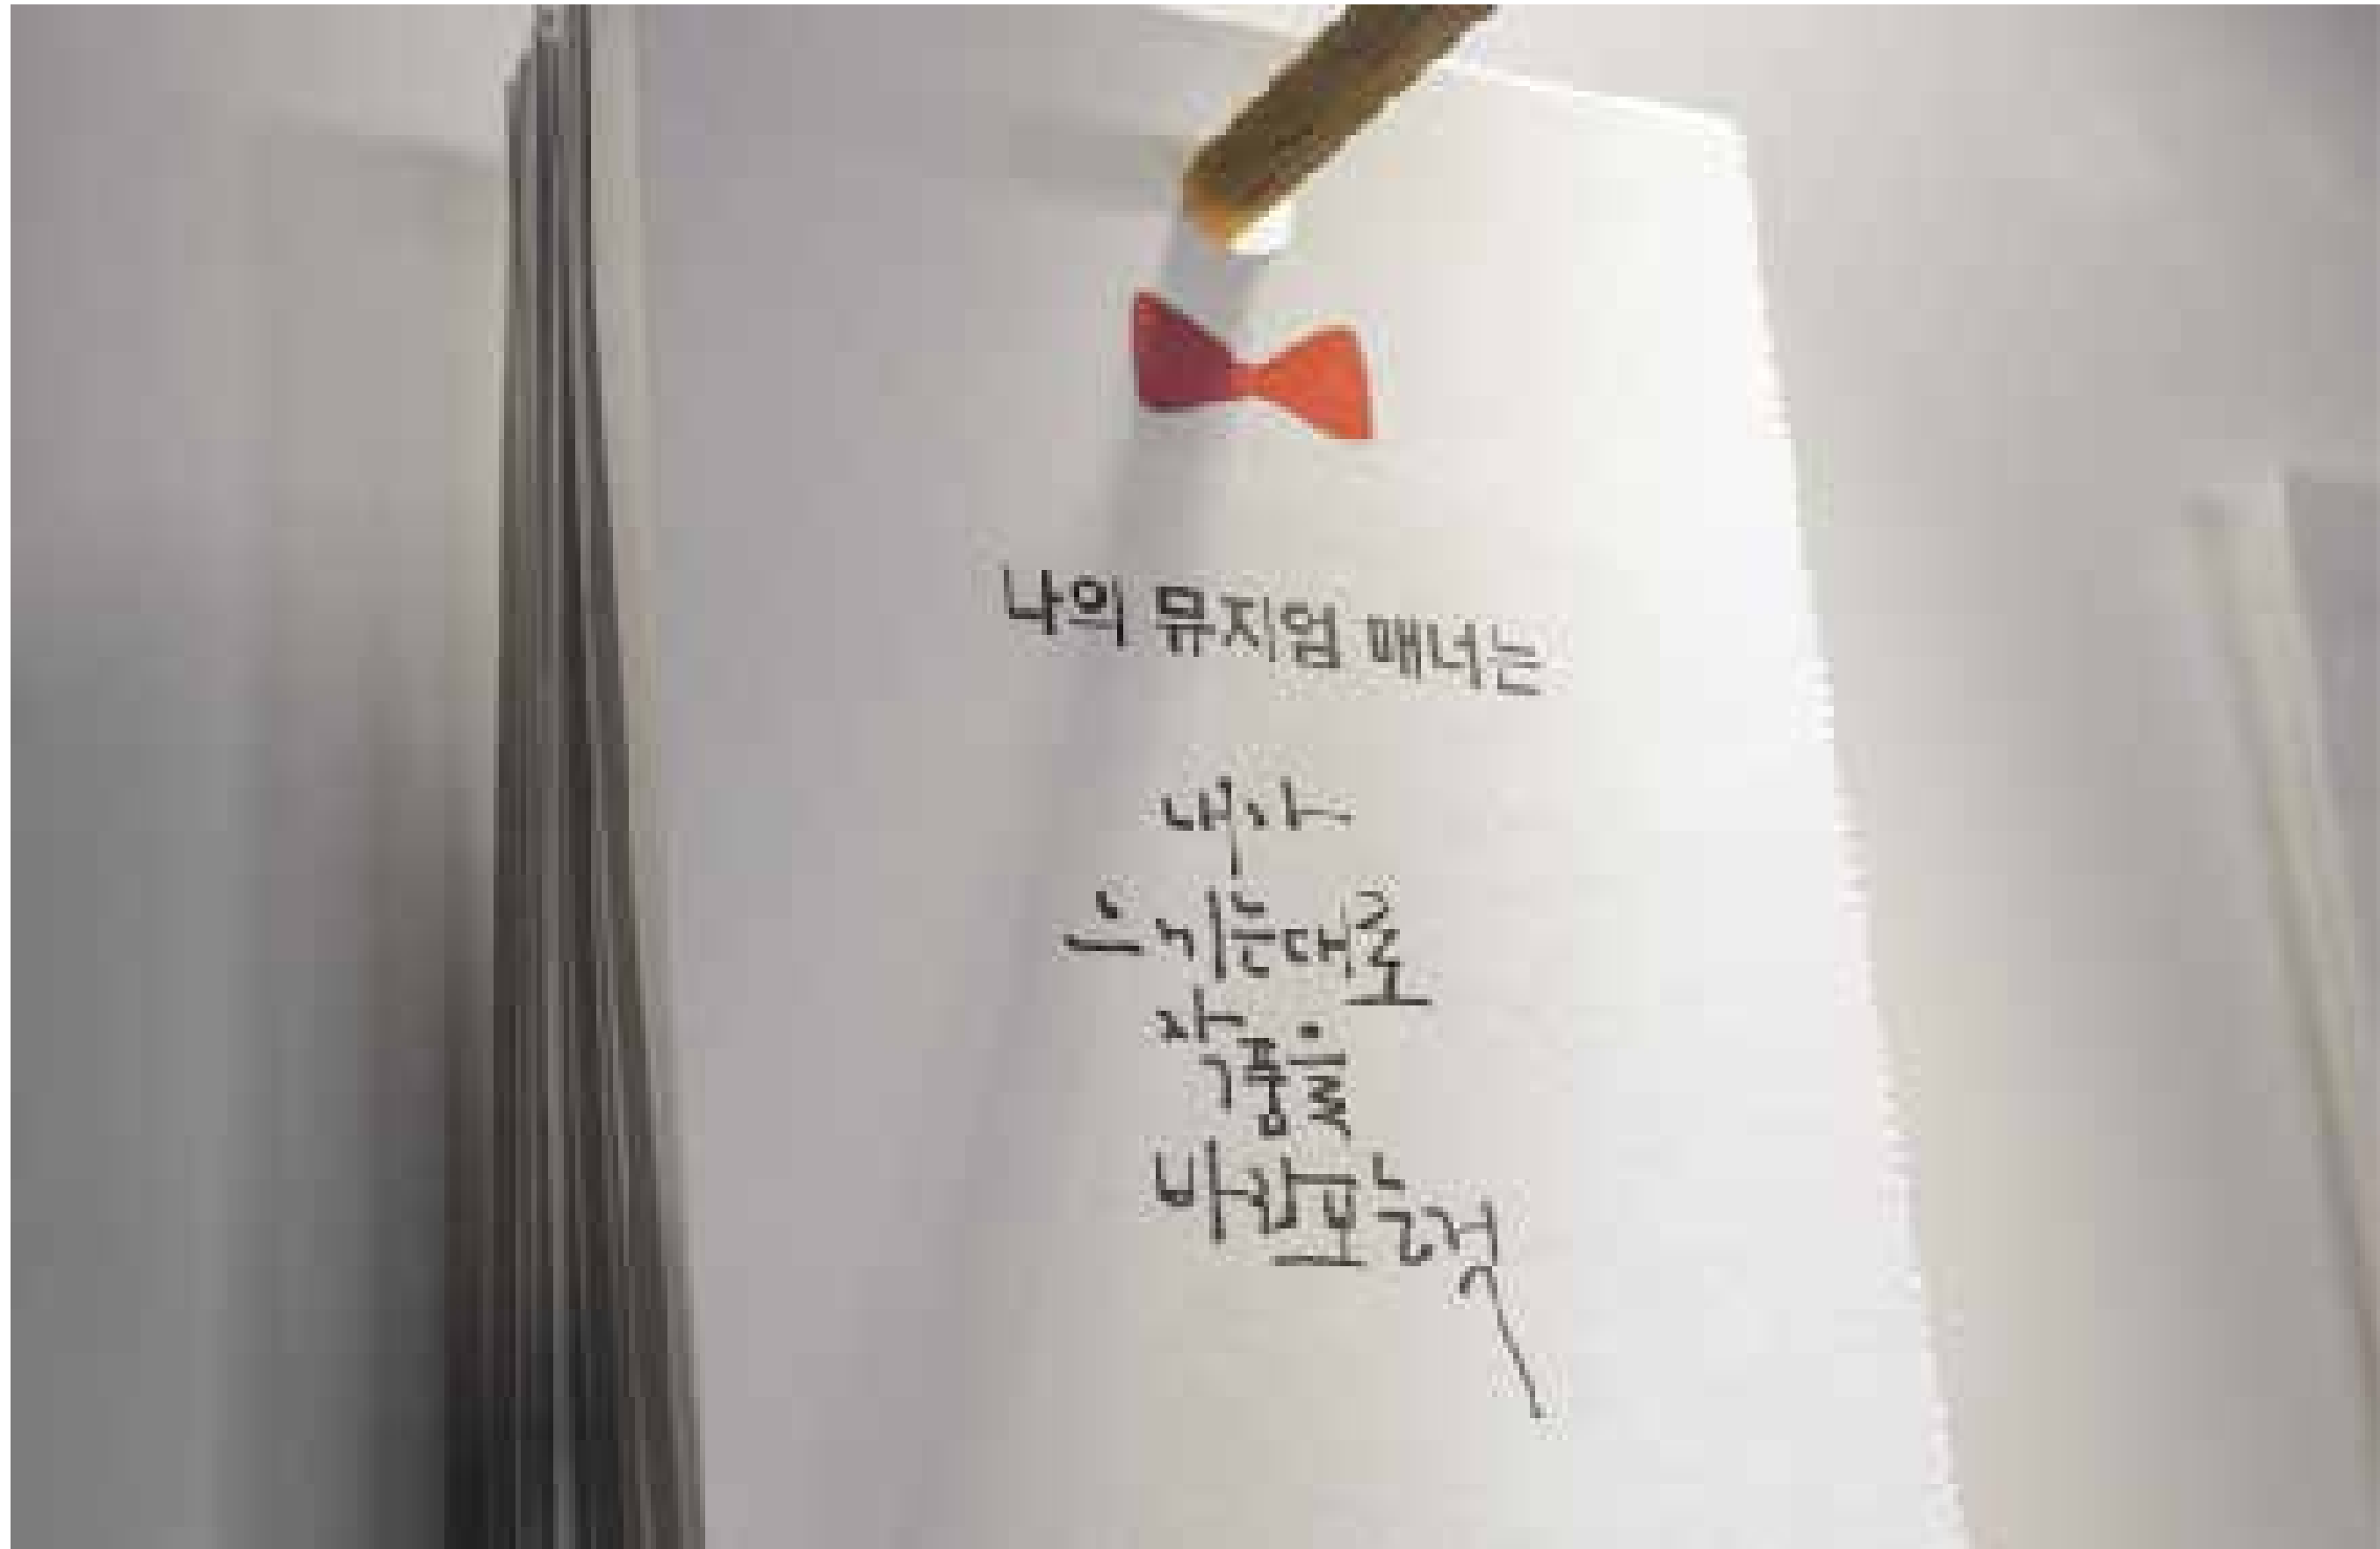 나의 뮤지엄 매너는
내가
느낀대로
작품을
바라볼 것